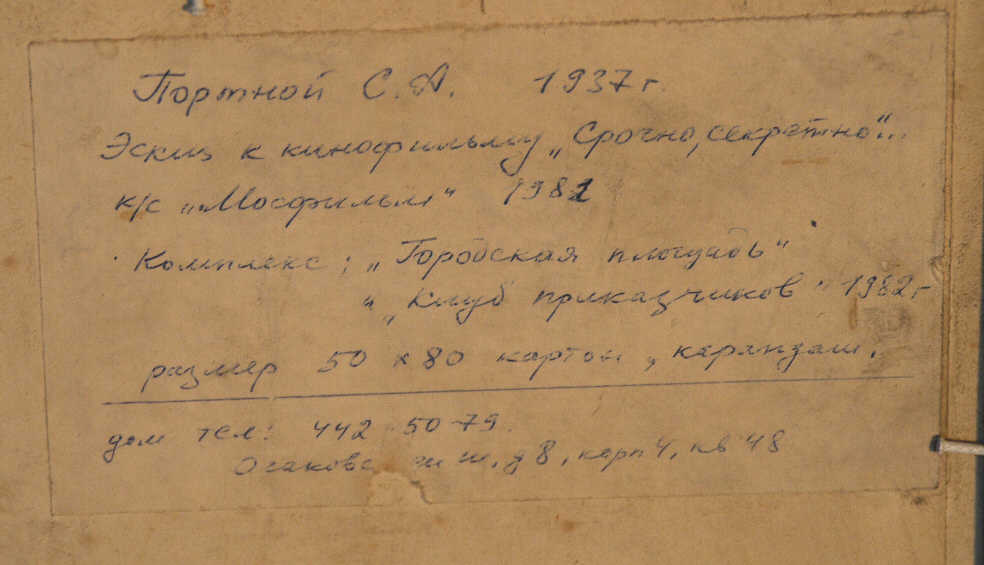 Портной С.А. 1937 г.
Эскиз к кинофильму „Срочно, секретно“...
к/с „Мосфильм“ 1981
Комплекс: „Городская площадь“
" „Клуб приказчиков" 1982 г
размер 50 х 80 картон, карандаш.
дом тел: 442 50-79.
ш, д 8, корп 4, кв 48